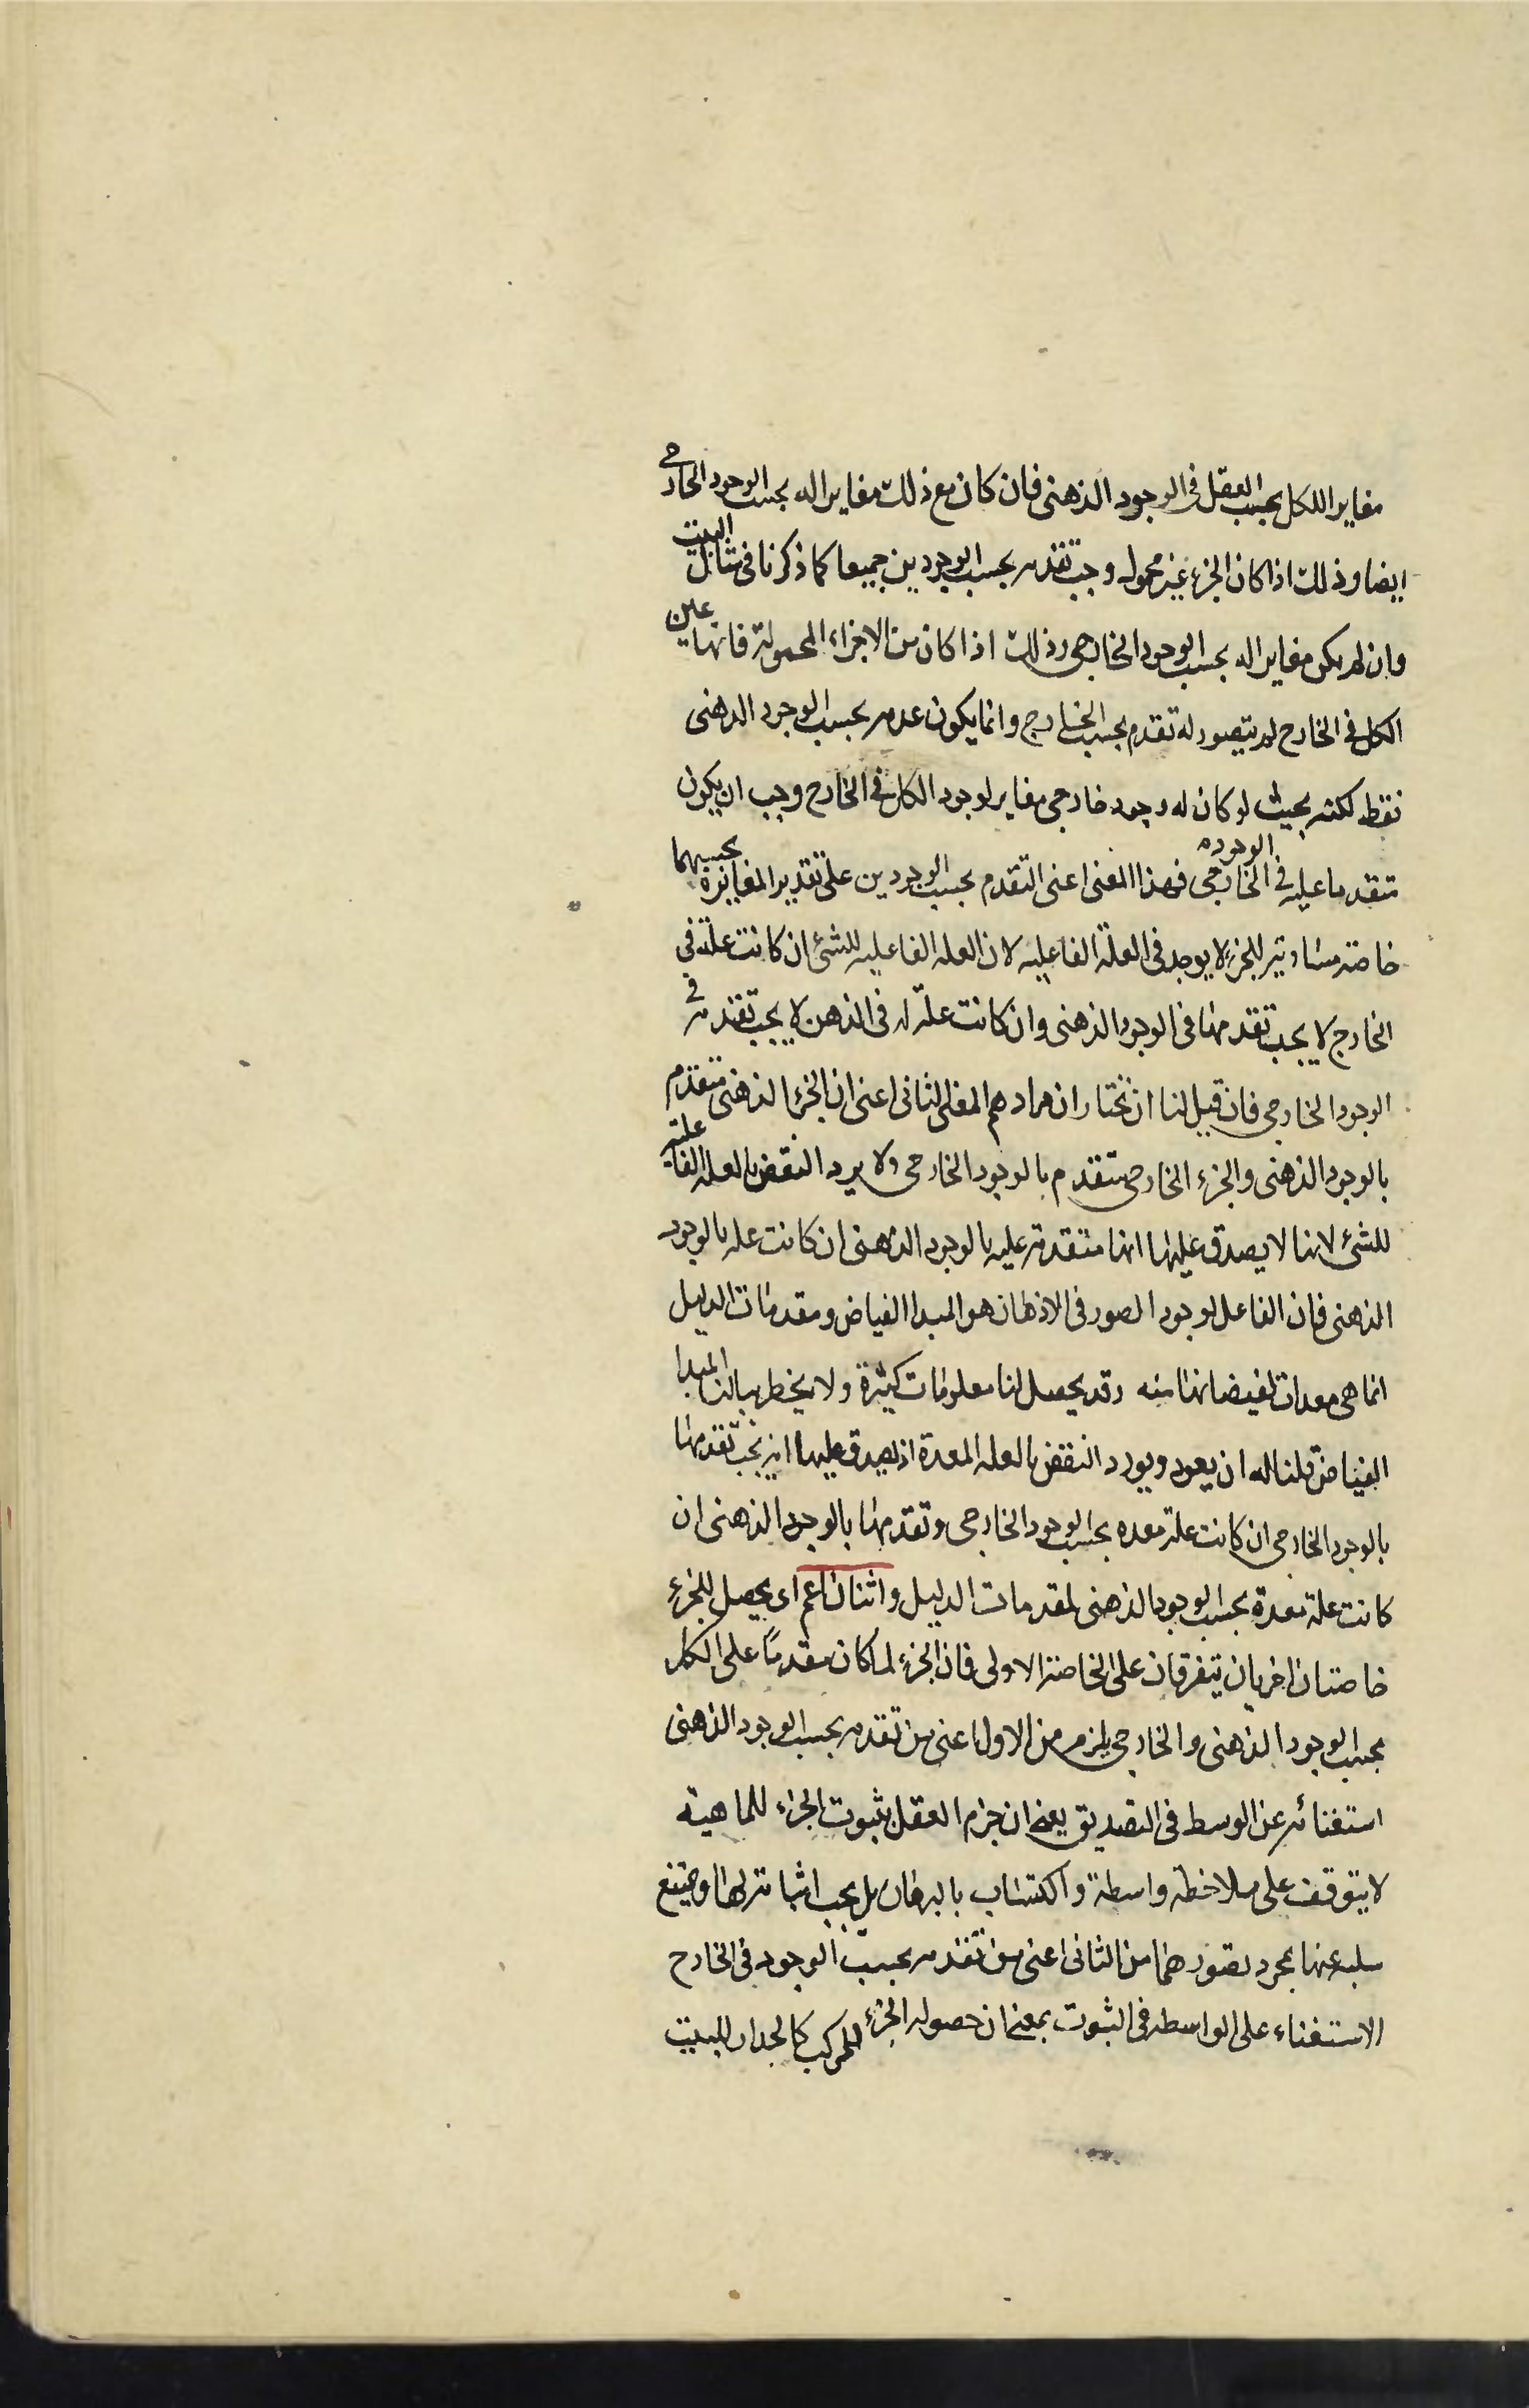 مغايرا للكل بحسب العقل فى الوجود الذهنى فان كان مع ذلك مغايرا له بحسب الوجود الخارجى
ايضا وذلك اذا كان الجزء غير محمول وجب تقدمه بحسب الوجودين جميعا كما ذكرنا فى مثال البيت
وان لم يكن مغايرا له بحسب الوجود الخارجى وذلك اذا كان من الاجزاء المحمولة فانها عين
الكل فى الخارج لم يتصور له تقدم بحسب الخارج وانما يكون عدمه بحسب الوجود الذهنى
فقط لكنه بحيث لو كان له وجود خارجى مغاير لوجود الكل فى الخارج وجب ان يكون
متقدما عليه فى الوجود الخارجى فهذا المعنى اعنى التقدم بحسب الوجودين على تقدير المغايرة بحسبهما
خاصة مساوية للجزء لا يوجد فى العلة الفاعليه لان العله الفاعليه للشئ ان كانت علة فى
الخارج لا يجب تقدمها فى الوجود الذهنى وان كانت علة له فى الذهن لا يجب تقدمه فى
الوجود الخارجى فان قيل لنا ان نختار ان مرادهم المعنى الثانى اعنى ان الجزء الذهنى متقدم
بالوجود الذهنى والجزء الخارجى متقدم بالوجود الخارجى ولا يرد النقض بالعله الفاعلية
للشئ لانها لا يصدق عليها انها متقدمة عليه بالوجود الذهنى ان كانت علة بالوجود
الذهنى فان الفاعل لوجود الصور فى الاذهان هو المبدا الفياض ومقدمات الدليل
انما هى معدات لفيضانها منه وقد يحصل لنا معلومات كثيرة ولا يخطر ببالنا المبدا
الفياض قلنا له ان يعود ويورد النقض بالعله المعدة اذ يصدق عليها انه يجب تقدمها
بالوجود الخارجى ان كانت علة معده بحسب الوجود الخارجى وتقدمها بالوجود الذهنى ان
كانت علة معدة بحسب الوجود الذهنى لمقدمات الدليل واثنان اعم اى يحصل للجزء
خاصتان اخريان يتفرقان على الخاصة الاولى فان الجزء لما كان مقدمًا على الكل
بحسب الوجود الذهنى والخارجى يلزم من الاول اعنى من تقدمه بحسب الوجود الذهنى
استغنائه عن الوسط فى التصديق بمعنى ان جزم العقل بثبوت الجزء للماهية
لا يتوقف على ملاحظة واسطة واكتساب بالبرهان بل يجب اثباته لها ويمتنع
سلبه عنها بمجرد تصورهما من الثانى اعنى من تقدمه بحسب الوجود فى الخارج
الاستغناء على الواسطه فى الثبوت بمعنى ان حصول الجزء للمركب كالجدار للبيت